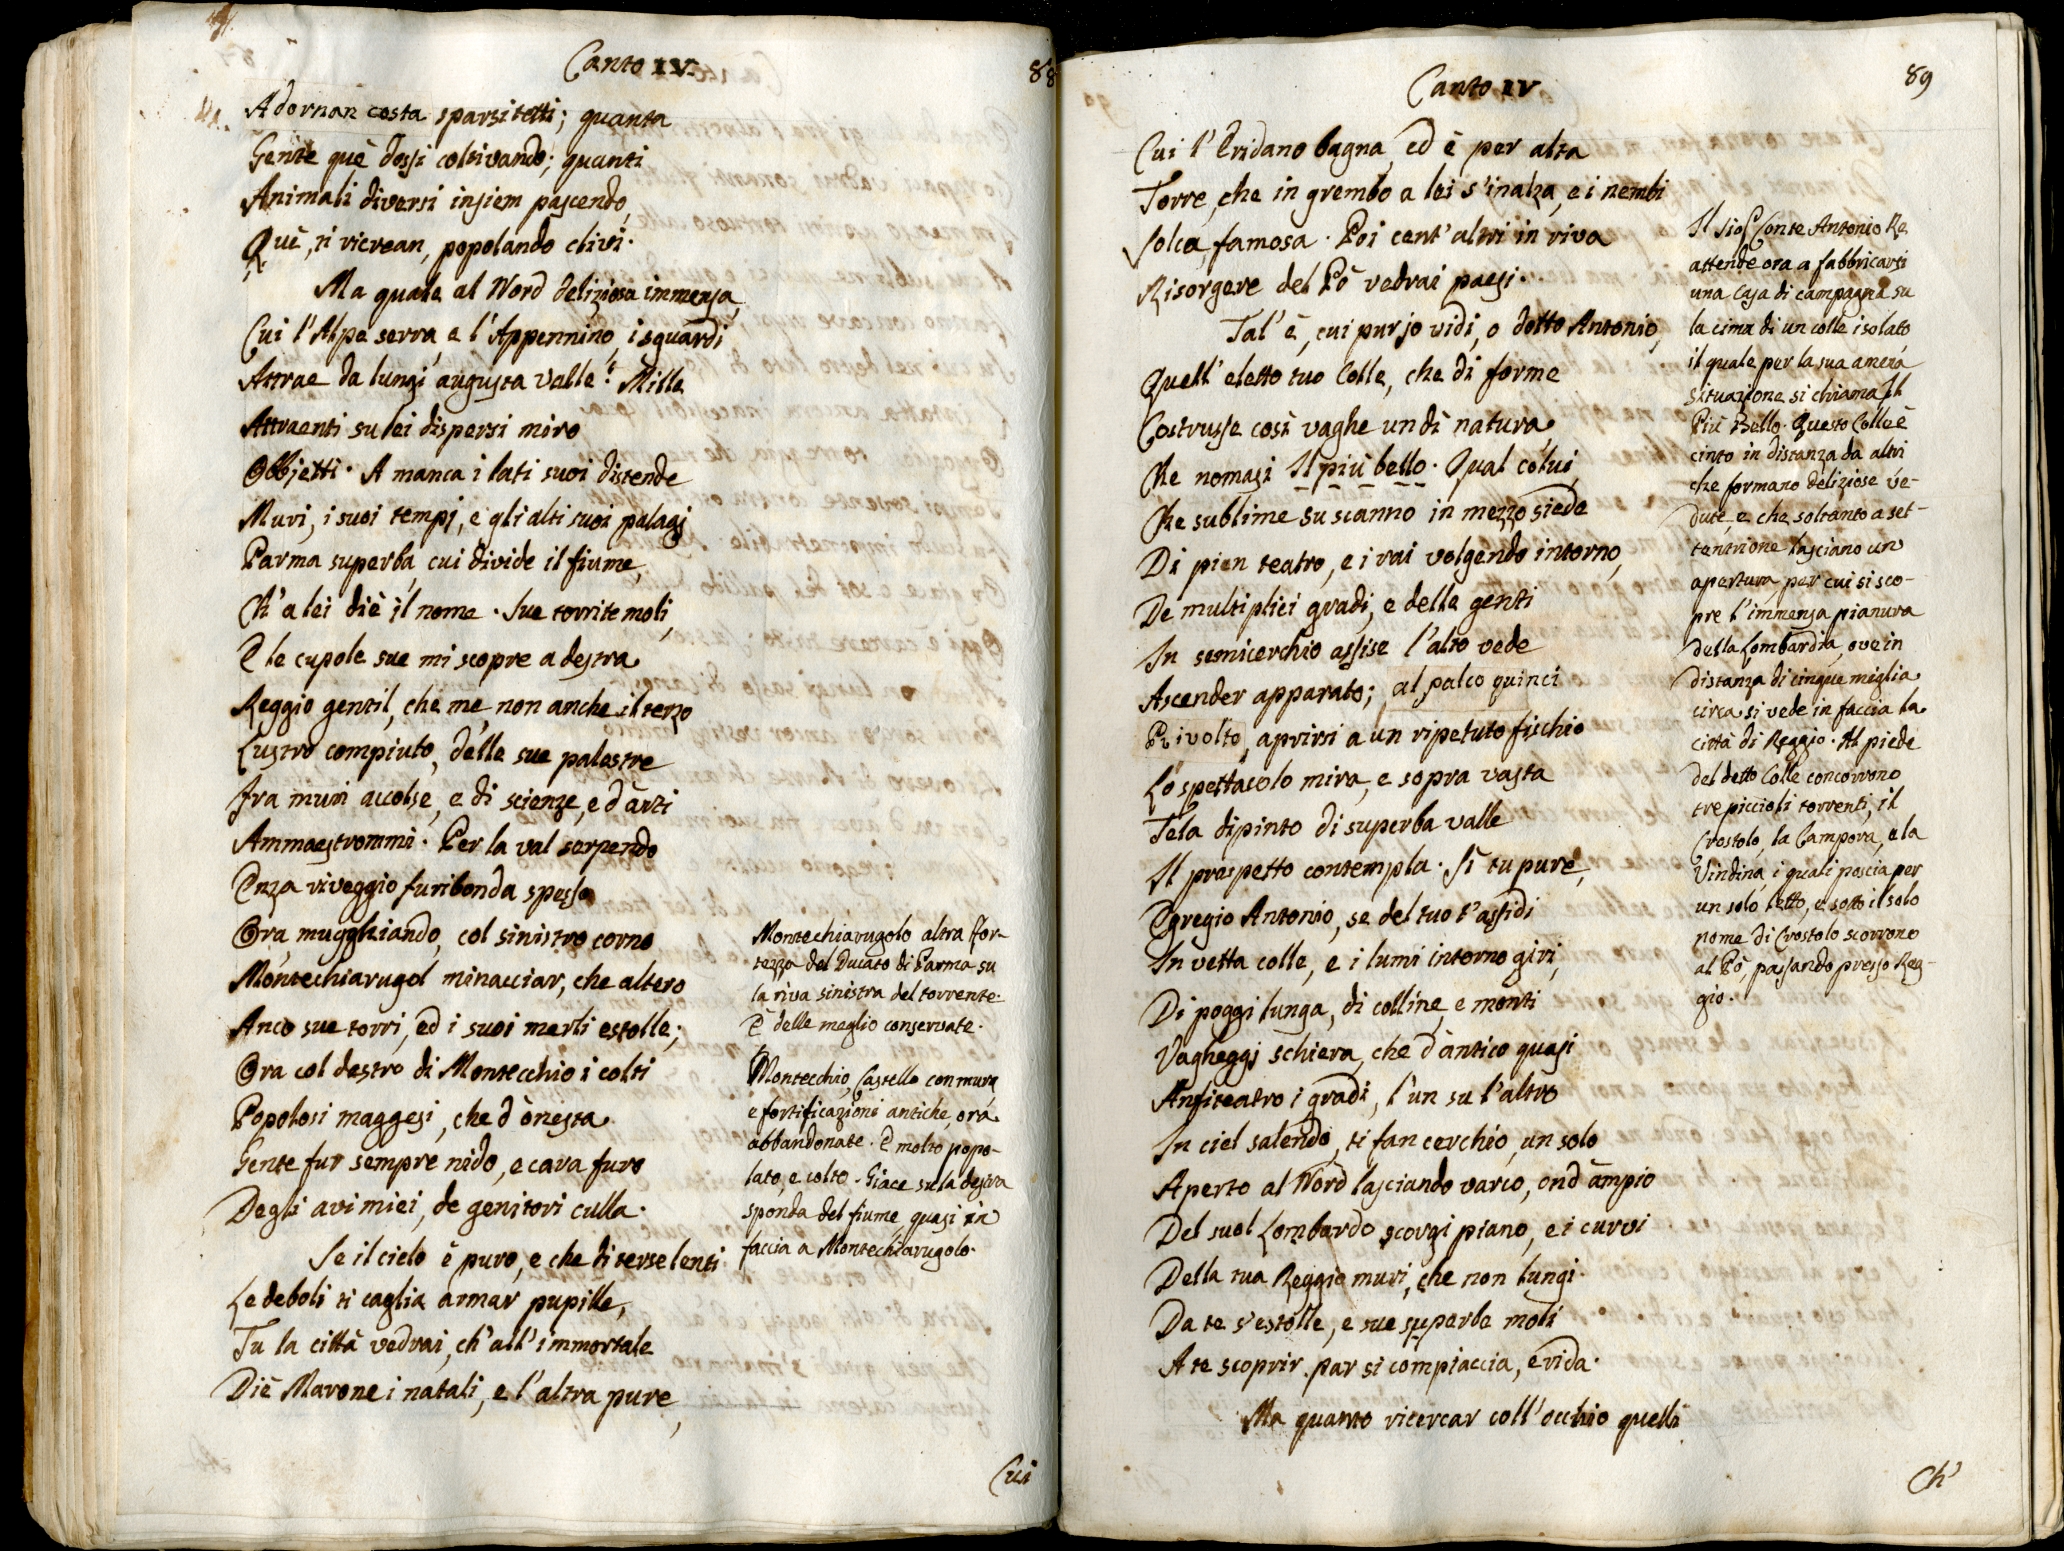 Canto IV.
88
Adornan costa sparsi tetti; quanta
Gente què dossi coltivando; quanti
Animali diversi insiem pascendo,
Què, si ricrean, popolando clivi.
Ma quale al Nord deliziosa immensa,
Cui l'Alpe serra, e l'Appennino, i sguardi
Attrae da lungi augusta valle? Mille
Attraenti su lei dispersi miro
Obbjetti. A manca i lati suoi distende
Muri, i suoi tempj, e gli alti suoi palagj
Parma superba, cui divide il fiume,
Ch'a lei diè il nome. Sue torrite moli,
E le cupole sue mi scopre a destra
Reggio gentil, che me, non anche il terzo
Lustro compiuto, delle sue palestre
Fra muri accolse, e di scienze, e d'arti
Ammaestrommi. Per la val serpendo
Enza riveggio furibonda spesso
Ora mugghiando, col sinistro corno
Montechiarugol minacciar, che altero
Anco sue torri, ed i suoi merli estolle;
Ora col destro di Montecchio i colti
Popolosi maggesi, che d'onesta
Gente fur sempre nido, e cara furo
Degli avi miei, de genitori culla.
Se il cielo è puro, e che di terse lenti
Le deboli ti caglia armar pupille,
Tu la città vedrai, ch'all'immortale
Diè Marone i natali, e l'altra pure,
Montechiarugolo altra For-
tezza del Ducato di Parma su
la riva sinistra del torrente.
È delle meglio conservate.
Montecchio, Castello con mura
e fortificazioni antiche, ora
abbandonate. È molto popo-
lato, e colto. Giace su la destra
sponda del fiume, quasi in
faccia a Montechiarugolo.
Cui
Canto IV
89
Cui l'Eridano bagna, ed è per alta
Torre, che in grembo a lei s'inalza, e i nembi
Solca, famosa. Poi cent'altri in riva
Risorgere del Pò vedrai paesi.
Tal'è, cui pur jo vidi, o dotto Antonio,
Quell'eletto tuo Colle, che di forme
Costrusse così vaghe un dì natura,
Che nomasi Il più bello. Qual colui,
Che sublime su scanno in mezzo siede
Di pien teatro, e i rai volgendo intorno,
De multiplici gradi, e delle genti
In semicerchio assise l'alto vede
Ascender apparato; al palco quinci
Rivolto, aprirsi a un ripetuto fischio
Lo spettacolo mira, e sopra vasta
Tela dipinto di superba valle
Il prospetto contempla. Sì tu pure,
Egregio Antonio, se del tuo t'assidi
In vetta colle, e i lumi intorno giri,
Di poggi lunga, di colline, e monti
Vagheggj schiera, che d'antico quasi
Anfiteatro i gradi, l'un su l'altro
In ciel salendo, ti fan cerchio, un solo
Aperto al Nord lasciando varco, ond'ampio
Del suol Lombardo scorgi piano, e i curvi
Della tua Reggio muri, che non lungi
Da te s'estolle, e sue superbe moli
A te scoprir par si compiaccia, e rida.
Ma quanto ricercar coll'occhio quelli
Il Sig.r Conte Antonio Re
attende ora a fabbricarsi
una Casa di campagna su
la cima di un colle isolato
il quale per la sua amena
situazione si chiama Il
Più Bello. Questo Colle è
cinto in distanza da altri
che formano deliziose ve-
dute, e che soltanto a set-
tentrione lasciano un
apertura per cui si sco-
pre l'immensa pianura
della Lombardia, ove in
distanza di cinque miglia
circa si vede in faccia la
città di Reggio. Al piede
del detto Colle concorrono
tre piccioli torrenti, il
Crostolo, la Campora, e la
Vindina, i quali poscia per
un solo letto, e sotto il solo
nome di Crostolo scorrono
al Pò, passando presso Reg-
gio.
Ch'